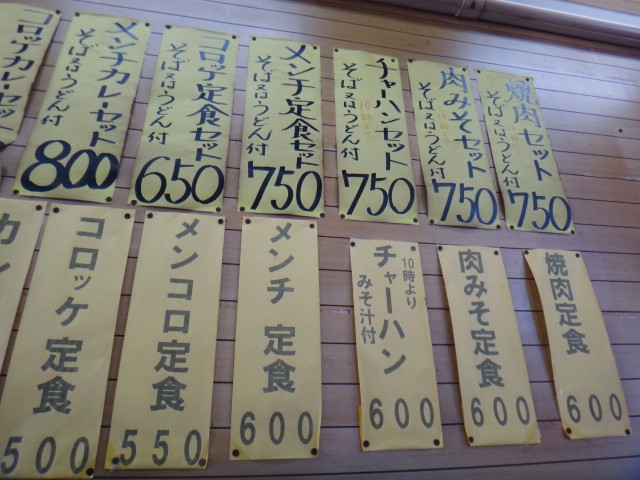 焼肉セット
そば又はうどん付
750
肉みそセット
そば又はうどん付
750
チャーハンセット
そば又はうどん付
750
メンチ定食セット
そば又はうどん付
750
コロッケ定食セット
そば又はうどん付
650
メンチカレーセット
そば又はうどん付
800
コロッケカレーセット
焼肉定食
600
肉みそ定食
600
10時より
チャーハン
みそ汁付
600
メンチ定食
600
メンコロ定食
550
コロッケ定食
500